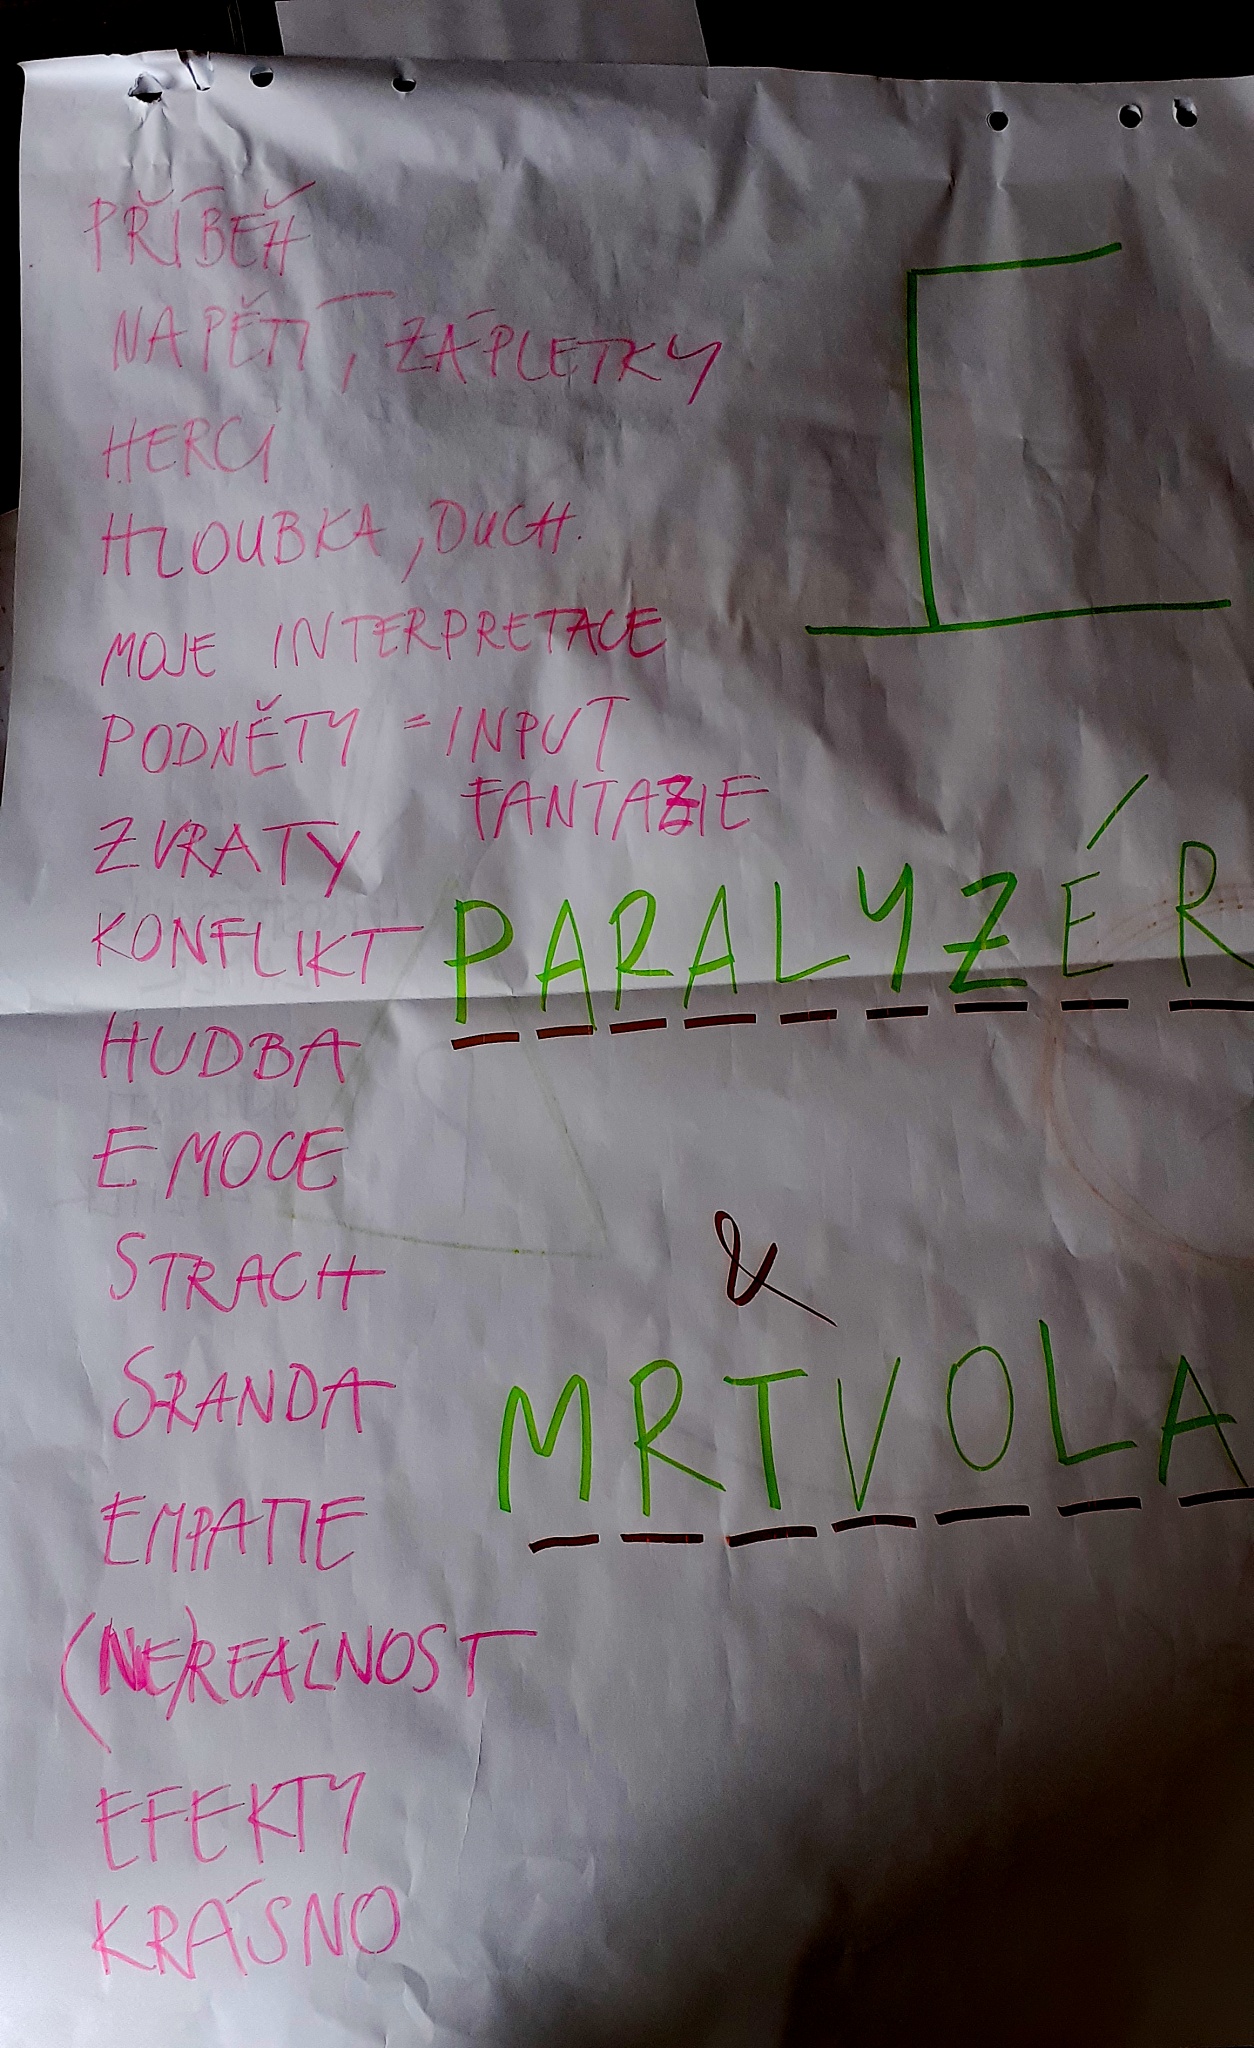 PŘÍBĚH
NAPĚTÍ, ZÁPLETKY
HERCI
HLOUBKA, DUCH.
MOJE INTERPRETACE
PODNĚTY = INPUT
FANTAZIE
ZVRATY
KONFLIKT
HUDBA
EMOCE
STRACH
SRANDA
EMPATIE
(NE)REÁLNOST
EFEKTY
KRÁSNO
PARALYZÉR
&
MRTVOLA